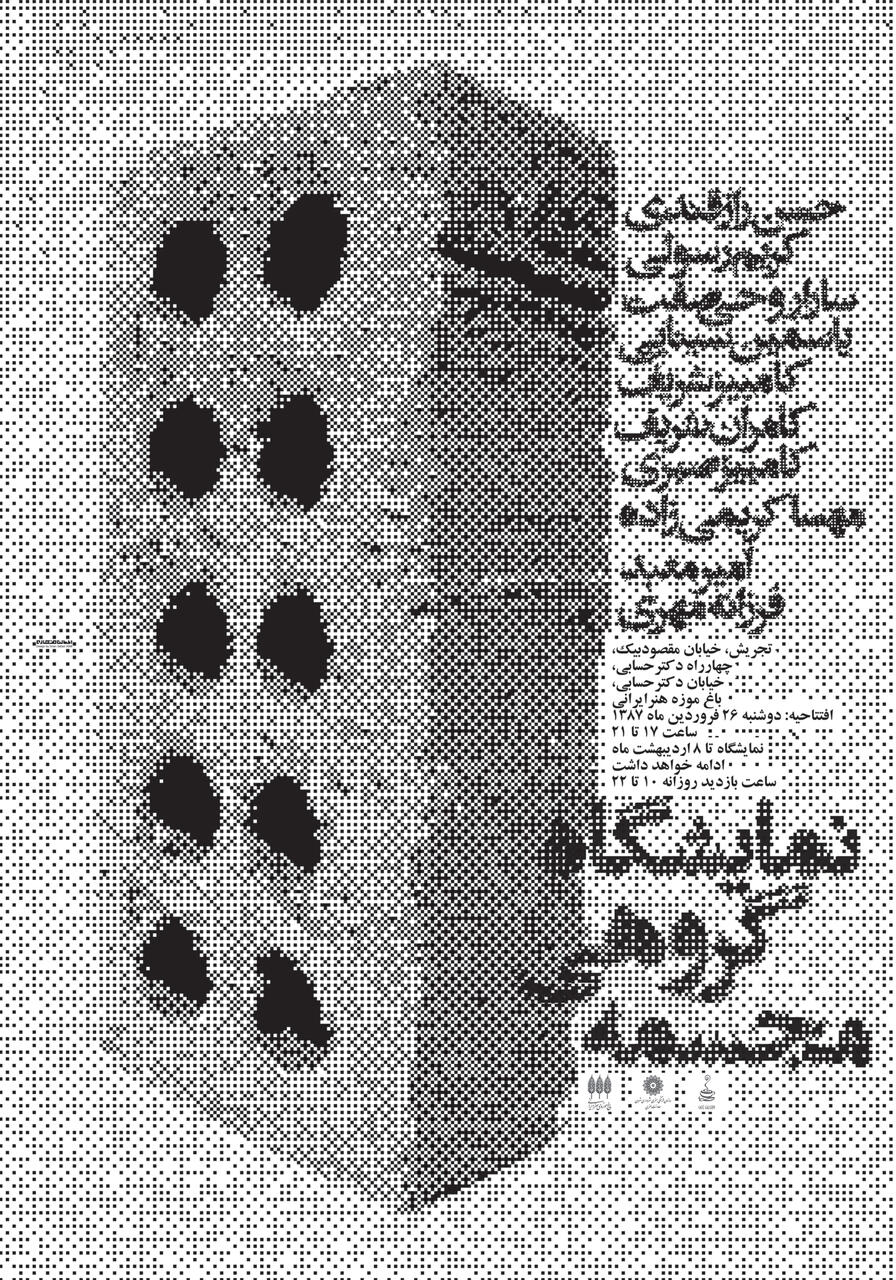 حسن رازقندی
کریم رسولی
سارا روحی‌صفت
یاسمین سینایی
کامبیز شریف
کامران شریف
کامبیز صبری
مهسا کریمی‌زاده
امیر معبد
فرزانه مهری
تجریش، خیابان مقصودبیک،
چهارراه دکترحسابی،
خیابان دکترحسابی،
باغ موزه هنرایرانی
افتتاحیه: دوشنبه ۲۶ فروردین ماه ۱۳۸۷
ساعت ۱۷ تا ۲۱
نمایشگاه تا ۸ اردیبهشت ماه
ادامه خواهد داشت
ساعت بازدید روزانه ۱۰ تا ۲۲
نمایشگاه
گروهی
مجسمه